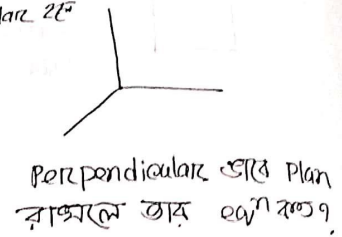 lar হলে
Perpendicular ভাবে Plan
রাখলে তার eqn কত?